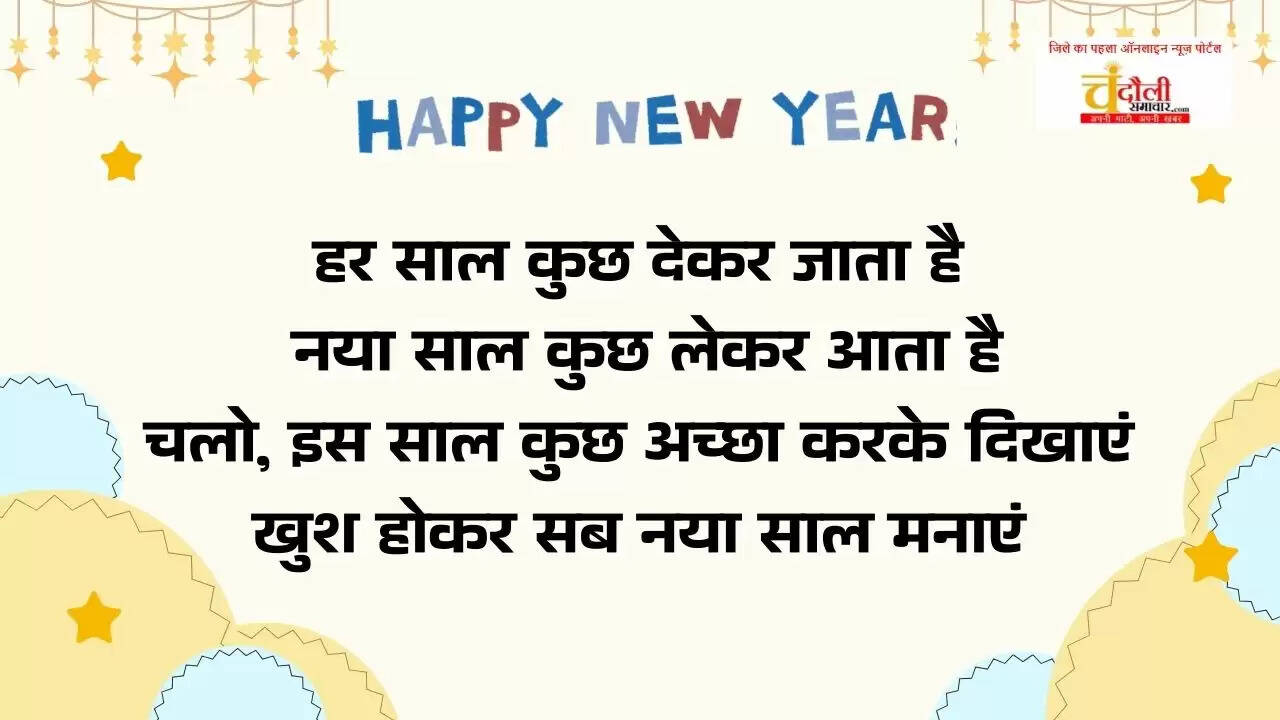 जिले का पहला ऑनलाइन न्यूज़ पोर्टल
चंदौली
समाचार.com
अपनी माटी, अपनी खबर
HAPPY NEW YEAR.
हर साल कुछ देकर जाता है
नया साल कुछ लेकर आता है
चलो, इस साल कुछ अच्छा करके दिखाएं
खुश होकर सब नया साल मनाएं